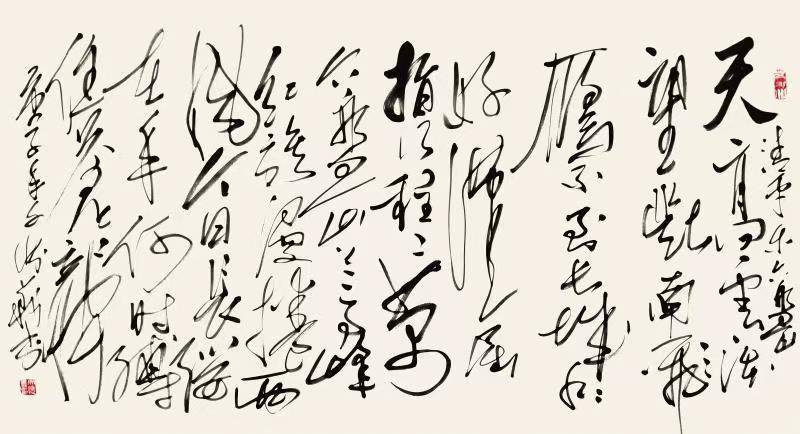 清平乐六盘山
天高雲淡
望断南飛
雁不到长城非
好漢屈
指行程二萬
六盘山上高峰
红旗漫捲西
風今日长缨
在手何时縛
住苍龍
庚子年书